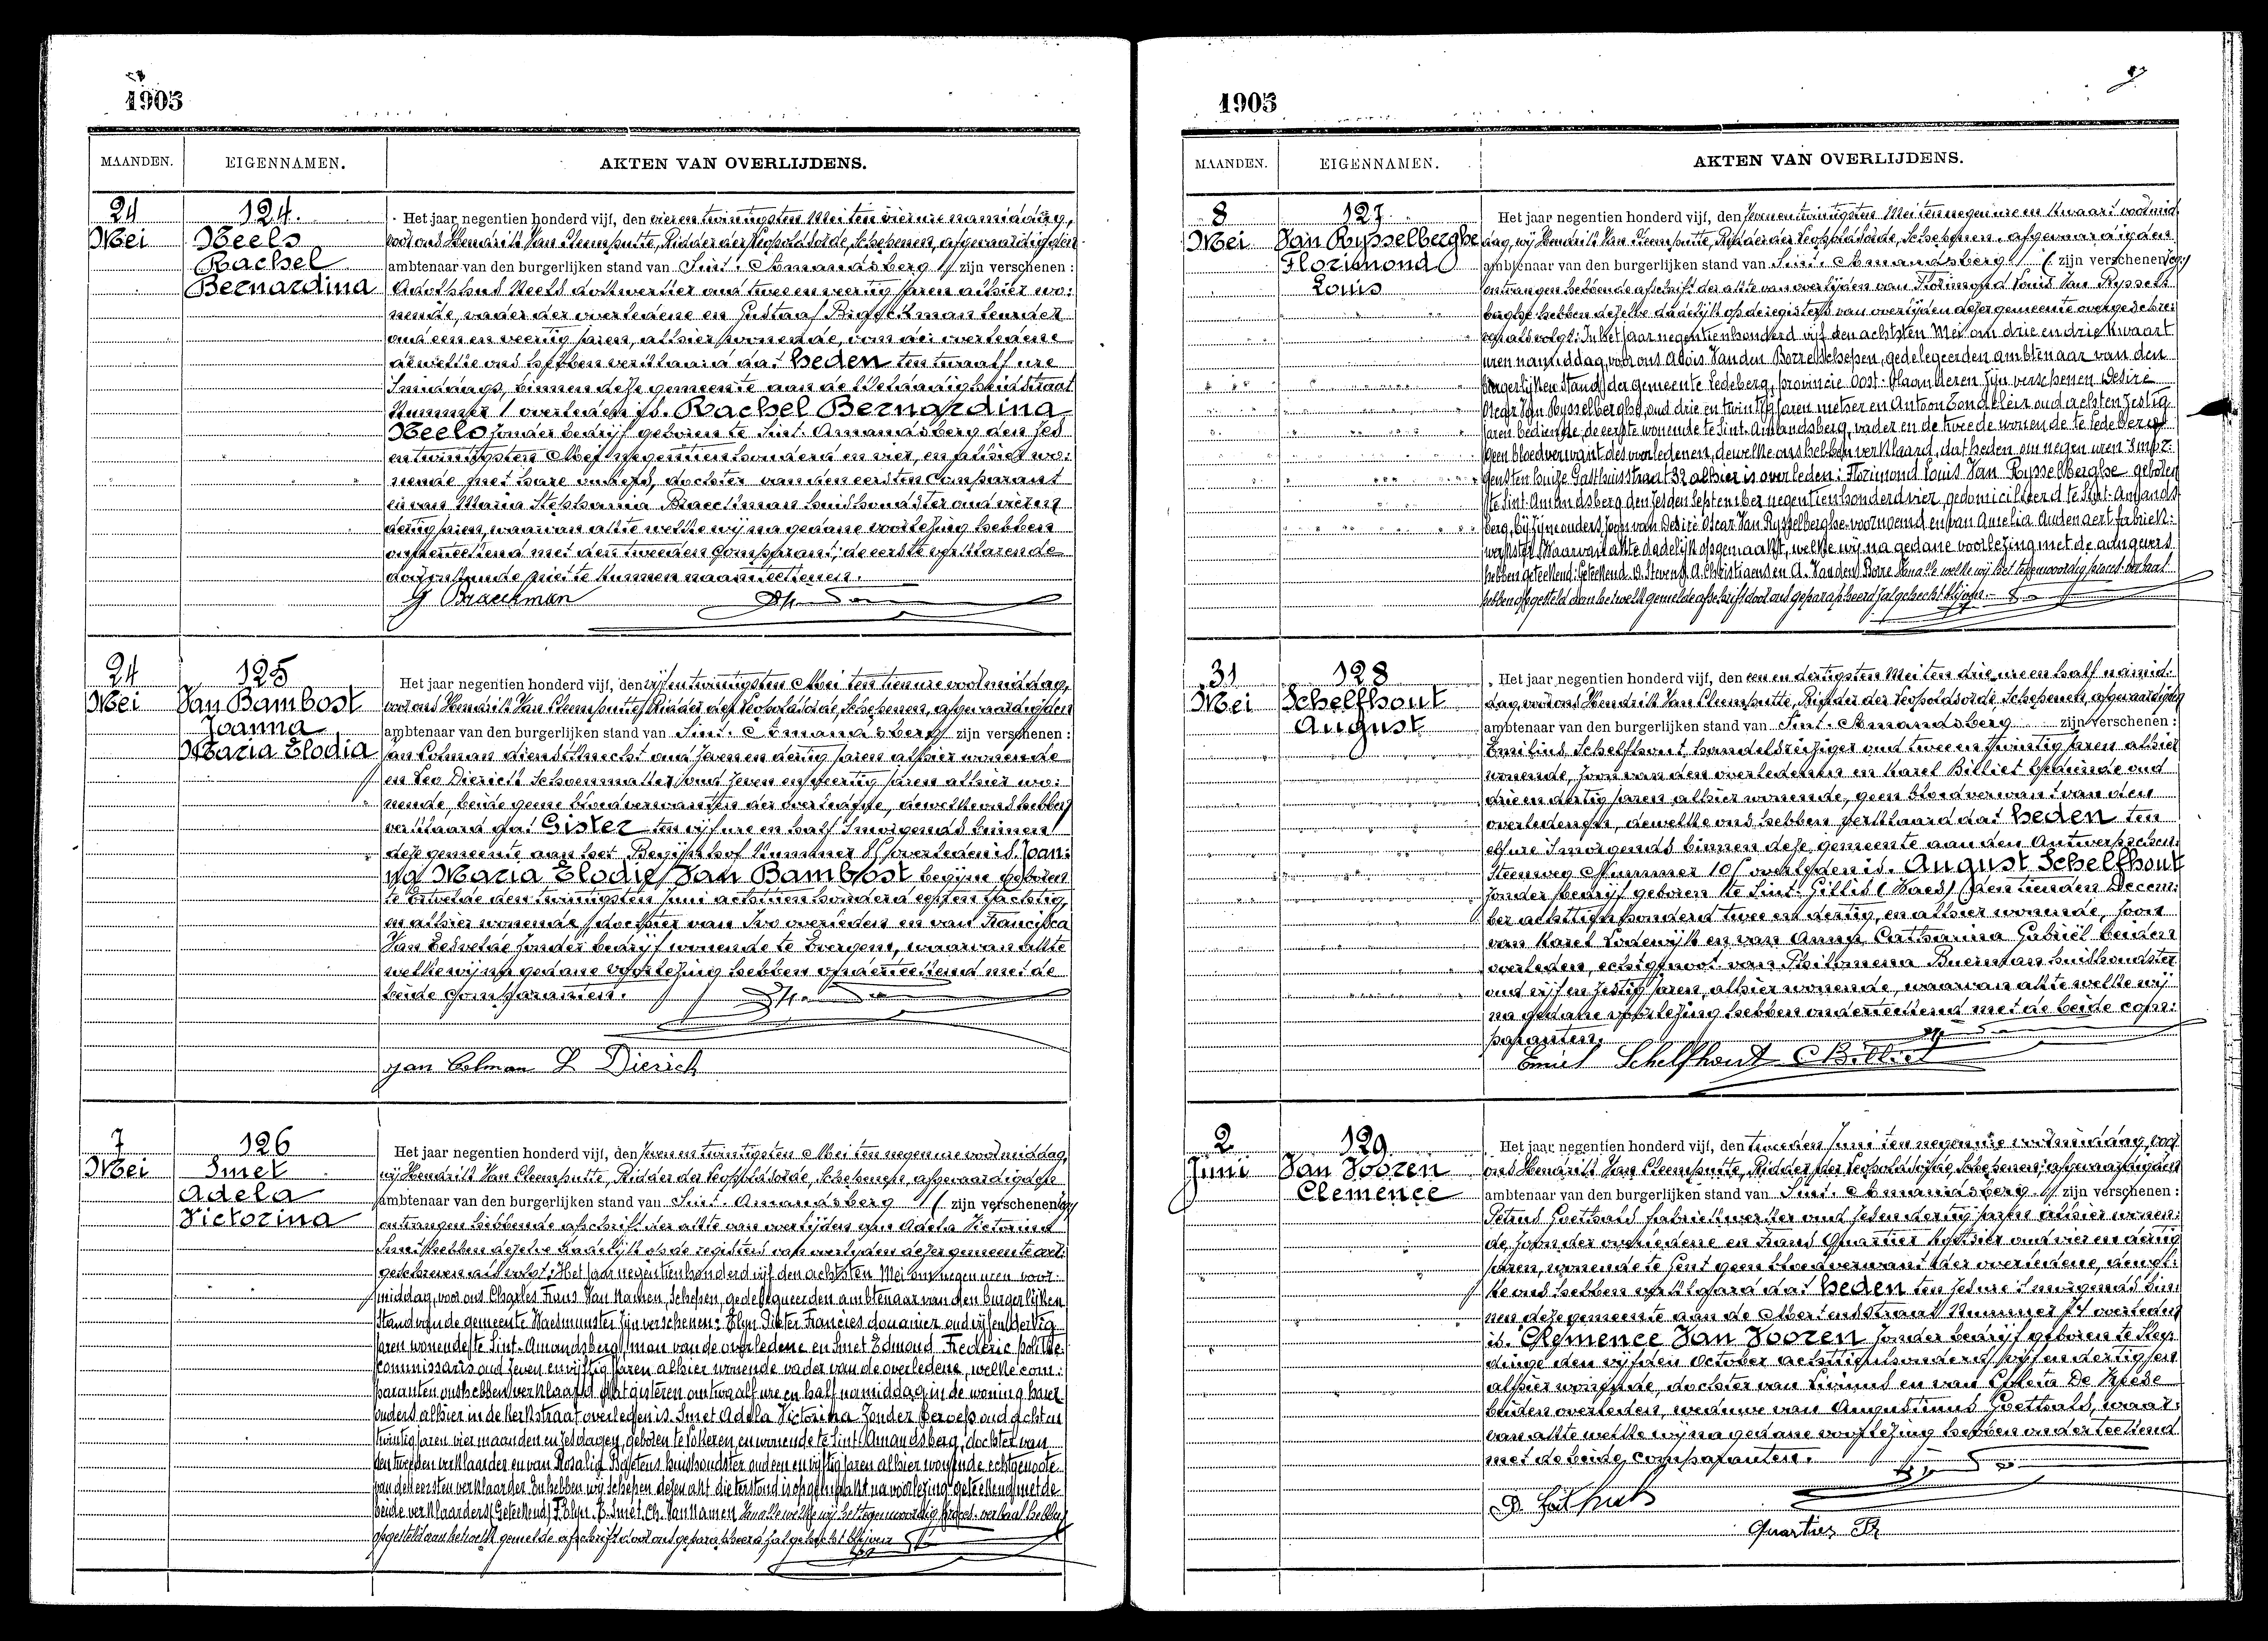 1905
MAANDEN. EIGENNAMEN. AKTEN VAN OVERLIJDENS.
24 Mei
124.
Neels
Rachel
Bernardina
Het jaar negentien honderd vijf, den vier en twintigsten Mei ten vier ure namiddag,
voor ons Hendrik Van Cleemputte, Ridder der Leopoldsorde, Schepenen, afgevaardigden
ambtenaar van den burgerlijken stand van Sint-Amandsberg zijn verschenen:
Adolphus Neels dokwerker oud twee en veertig jaren alhier wo:
nende, vader der overledene en Gustaaf Braeckman leurder
oud een en veertig jaren, alhier wonende, oom der overledene
dewelke ons hebben verklaard dat heden ten twaalf ure
smiddags, binnen deze gemeente aan de
Nummer 1 overleden is. Rachel Bernardina
Neels zonder bedrijf geboren te Sint-Amandsberg den zes
en twintigsten Mei negentienhonderd en vier, en alhier wo:
nende met hare ouders, dochter van den eersten comparant
en van Maria Stephania Braeckman huishoudster oud vier en
dertig jaren, waarvan akte welke wij na gedane voorlezing hebben
onderteekend met den tweeden comparant, de eerste verklarende
daar niet te kunnen naamteekenen.
G Braeckman
24 Mei
125
Van Bambost
Joanna
Maria Elodia
Het jaar negentien honderd vijf, den vijf en twintigsten Mei ten tien ure voormiddag,
voor ons Hendrik Van Cleemputte, Ridder der Leopoldsorde, Schepenen, afgevaardigden
ambtenaar van den burgerlijken stand van Sint-Amandsberg zijn verschenen:
Jan Colman dienstknecht oud zeven en dertig jaren alhier wonende
en Leo Dierick Schoenmaker, oud zeven en veertig jaren alhier wo:
nende, beide geene bloedverwanten der overledene, dewelke ons hebben
verklaard dat Gister ten vijf ure en half smorgends binnen
deze gemeente aan het Begijnhof Nummer 85 overleden is. Joan:
na Maria Elodie Van Bambost begijne geboren
te Ertvelde den twintigsten Juni achttien honderd tachtig,
en alhier wonende, dochter van Ivo overleden en van Francisca
Van zonder bedrijf wonende te Evergem, waarvan akte
welke wij na gedane voorlezing hebben onderteekend met de
beide comparanten.
Jan Colman L Dierick
7 Mei
126
Smet
Adela
Victorina
Het jaar negentien honderd vijf, den zeven en twintigsten Mei ten negen ure voormiddag,
wij Hendrik Van Cleemputte, Ridder der Leopoldsorde, Schepenen, afgevaardigden
ambtenaar van den burgerlijken stand van Sint-Amandsberg ( zijn verschenen
ontvangen hebbende afschrift der akte van overlijden van Adela Victorina
Smet hebben dezelve dadelijk op de registers van overlijden dezer gemeente over:
geschreven als volgt: Het jaar negentienhonderd vijf den achtsten Mei om negen uren voor
middag, voor ons Charles Frans Van Namen, Schepen, gedelegueerden ambtenaar van den burgerlijken
Stand van de gemeente Waesmunster zijn verschenen: Blyn Pieter Francies douanier oud vijf en dertig
jaren wonende te Sint-Amandsberg, man van de overledene en Smet Edmond Frederic politie
commissaris oud zeven en vijftig jaren alhier wonende vader van de overledene, welke com:
paranten ons hebben verklaard dat gisteren om twaalf ure en half namiddag in de woning haer
ouders alhier in de Kerkstraat overleden is. Smet Adela Victorina zonder beroep oud acht en
twintig jaren vier maanden en zes dagen, geboren te Lokeren en wonende te Sint-Amandsberg, dochter van
den tweeden verklaarder en van Rosalia Baetens huishoudster oud een en vijftig jaren alhier wonende echtgenoote
van den eersten verklaarder. En hebben wij schepen dezen akt die terstond is opgemaakt na voorlezing geteekend met de
beide verklaarders (Geteekend) F. Blyn. E. Smet. Ch. Van Namen. Van alle welke wij het tegenwoordig proces-verbaal hebben
opgesteld aan hetwelk gemelde afschrift door ons geparapheerd zal gehecht blijven
1905
MAANDEN. EIGENNAMEN. AKTEN VAN OVERLIJDENS.
8 Mei
127
Van Rysselberghe
Florimond
Louis
Het jaar negentien honderd vijf, den zeven en twintigsten Mei ten negen ure en kwaart voormid
dag, wij Hendrik Van Cleemputte, Ridder der Leopoldsorde, Schepenen, afgevaardigden
ambtenaar van den burgerlijken stand van Sint-Amandsberg ( zijn verschenen
ontvangen hebbende afschrift der akte van overlijden van Florimond Louis Van Ryssel
berghe hebben dezelve dadelijk op de registers van overlijden dezer gemeente overgeschre:
ven als volgt: In het jaar negentienhonderd vijf den achtsten Mei om drie en drie kwaart
uren namiddag, voor ons Alois Vanden Borre Schepen, gedelegeerden ambtenaar van den
burgerlijken Stand der gemeente Ledeberg, provincie Oost-Vlaanderen zijn verschenen Desiré
Oscar Van Rysselberghe, oud drie en twintig jaren metser en Antoon Tondeleir oud acht en zestig
jaren bediende, de eerste wonende te Sint-Amandsberg, vader en de tweede wonende te Ledeberg
geen bloedverwant des overledenen, dewelke ons hebben verklaard, dat heden om negen uren smor:
gens ten huize Gasthuisstraat 32 alhier is overleden: Florimond Louis Van Rysselberghe geboren
te Sint-Amandsberg den zesden September negentienhonderd vier, gedomicilieerd te Sint-Amands
berg, bij zijne ouders, zoon van Desiré Oscar Van Rysselberghe voornoemd en van Amelia Audenaert fabriek:
werkster. Waarvan akte dadelijk opgemaakt, welke wij na gedane voorlezing met de aangevers
hebben geteekend: Geteekend: D. Stevens, A. Christiaens en A. Vanden Borre Van alle welke wij het tegenwoordig proces-verbaal
hebben opgesteld aan hetwelk gemelde afschrift door ons geparapheerd zal gehecht blijven.
31 Mei
128
Schelfhout
August
Het jaar negentien honderd vijf, den een en dertigsten Mei ten drie ure en half namid:
dag, voor ons Hendrik Van Cleemputte, Ridder der Leopoldsorde Schepenen, afgevaardigden
ambtenaar van den burgerlijken stand van Sint-Amandsberg zijn verschenen:
Emilius Schelfhout handelsreiziger oud twee en twintig jaren alhier
wonende, zoon van den overledenen en Karel Billiet bediende oud
drie en dertig jaren alhier wonende, geen bloedverwant van den
overledenen, dewelke ons hebben verklaard dat heden ten
elf ure smorgends binnen deze gemeente aan den Antwerpschen
Steenweg Nummer 10 overleden is. August Schelfhout
zonder bedrijf geboren te Sint-Gillis (Waes) den tienden Decem:
ber achttienhonderd twee en dertig, en alhier wonende, zoon
van Karel Lodewijk en van Anna Catharina Gabriël beiden
overleden, echtgenoot van Philomena Buerman huishoudster
oud vijf en zestig jaren, alhier wonende, waarvan akte welke wij
na gedane voorlezing hebben onderteekend met de beide com:
paranten.
Emiel Schelfhout C Billiet
2 Juni
129
Van Vooren
Clemence
Het jaar negentien honderd vijf, den tweeden Juni ten negen ure voormiddag, voor
ons Hendrik Van Cleemputte, Ridder der Leopoldsorde, Schepenen, afgevaardigden
ambtenaar van den burgerlijken stand van Sint-Amandsberg zijn verschenen:
Petrus Goethals fabriekwerker oud zes en dertig jaren alhier wonen:
de, zoon der overledene en Frans Quartier oud vier en dertig
jaren, wonende te Gent geen bloedverwant der overledene, dewel:
ke ons hebben verklaard dat heden ten zes ure smorgends bin
nen deze gemeente aan de straat Nummer 74 overleden
is. Clemence Van Vooren zonder bedrijf geboren te Sley
dinge den vijfden October achttienhonderd vijf en dertig, en
alhier wonende, dochter van Livinus en van Coleta De
beiden overleden, weduwe van Augustinus Goethals, waar:
van akte welke wij na gedane voorlezing hebben onderteekend
met de beide comparanten.
Quartier Fr